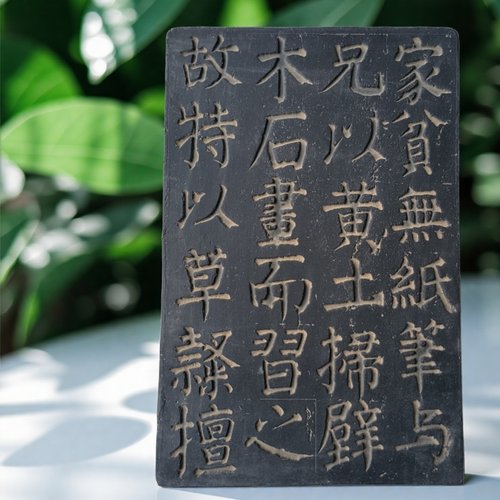 家貧無紙筆与
兄以黄土掃壁
木石畫而習之
故特以草隸擅